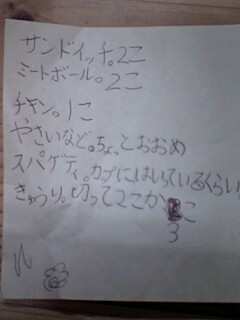 サンドイッチ。2こ
ミートボール。2こ
チキン。1こ
やさいなど。ちょっとおおめ
スパゲティ。カップにはいっているくらい
きゅうり。切って2こか こ
3